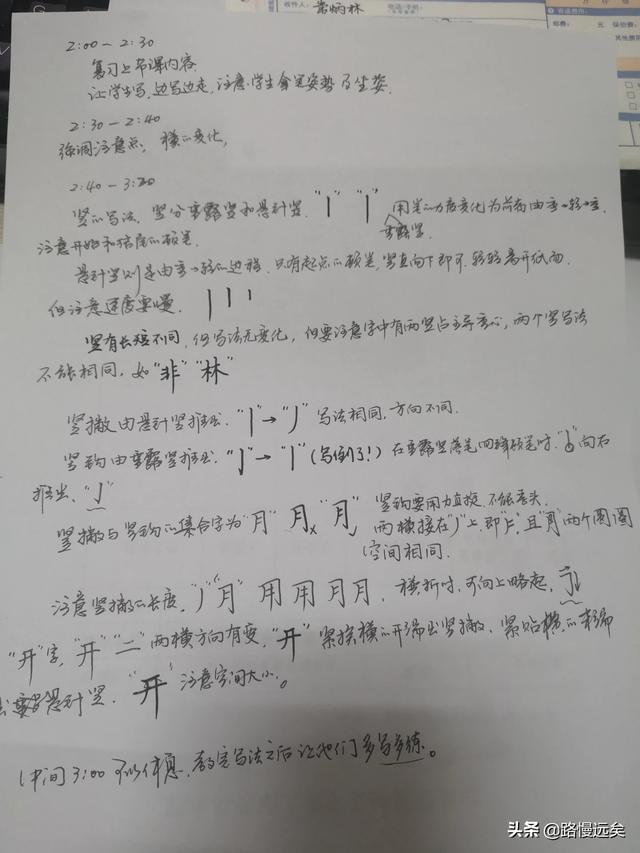 收件人:
黄炳林
2:00—2:30
复习上节课内容.
让学生写,边写边走,注意学生拿笔姿势与坐姿.
2:30—2:40
强调注意点:横的变化,
2:40—3:20
竖的写法.竖分垂露竖和悬针竖."丨""丨"用笔的力度变化为前者由重→轻→重.
垂露竖.
注意开始和结尾的顿笔.
悬针竖则是由重→轻的过程.只有起点的顿笔,竖直向下即可.轻轻离开纸面.
但注意速度要慢.
竖有长短不同,但写法无变化,但要注意字中有两竖占主导重心,两个竖写法
不能相同.如"非""林"
竖撇由悬针竖推出."丨"→"丿"写法相同,方向不同.
竖钩由垂露竖推出."亅"→"丨"(写倒了!)在垂露竖落笔回锋顿笔时."向右
推出."亅"
竖撇与竖钩的集合字为"月"月x"月"竖钩要用力直挺.不能
两横接在"丿"上.即且"月"两个圈圈
空间相同.
注意竖撇的长度."丿""月"用用月月.横折时,可向上略起,
"开"字."开""二"两横方向有变,"开"紧挨横的开端出竖撇、紧贴横的末端
悬针竖."开"注意空间大小。
(中间3:00可以休息,教完写法之后让他们多写多练。
头条 @路慢远矣